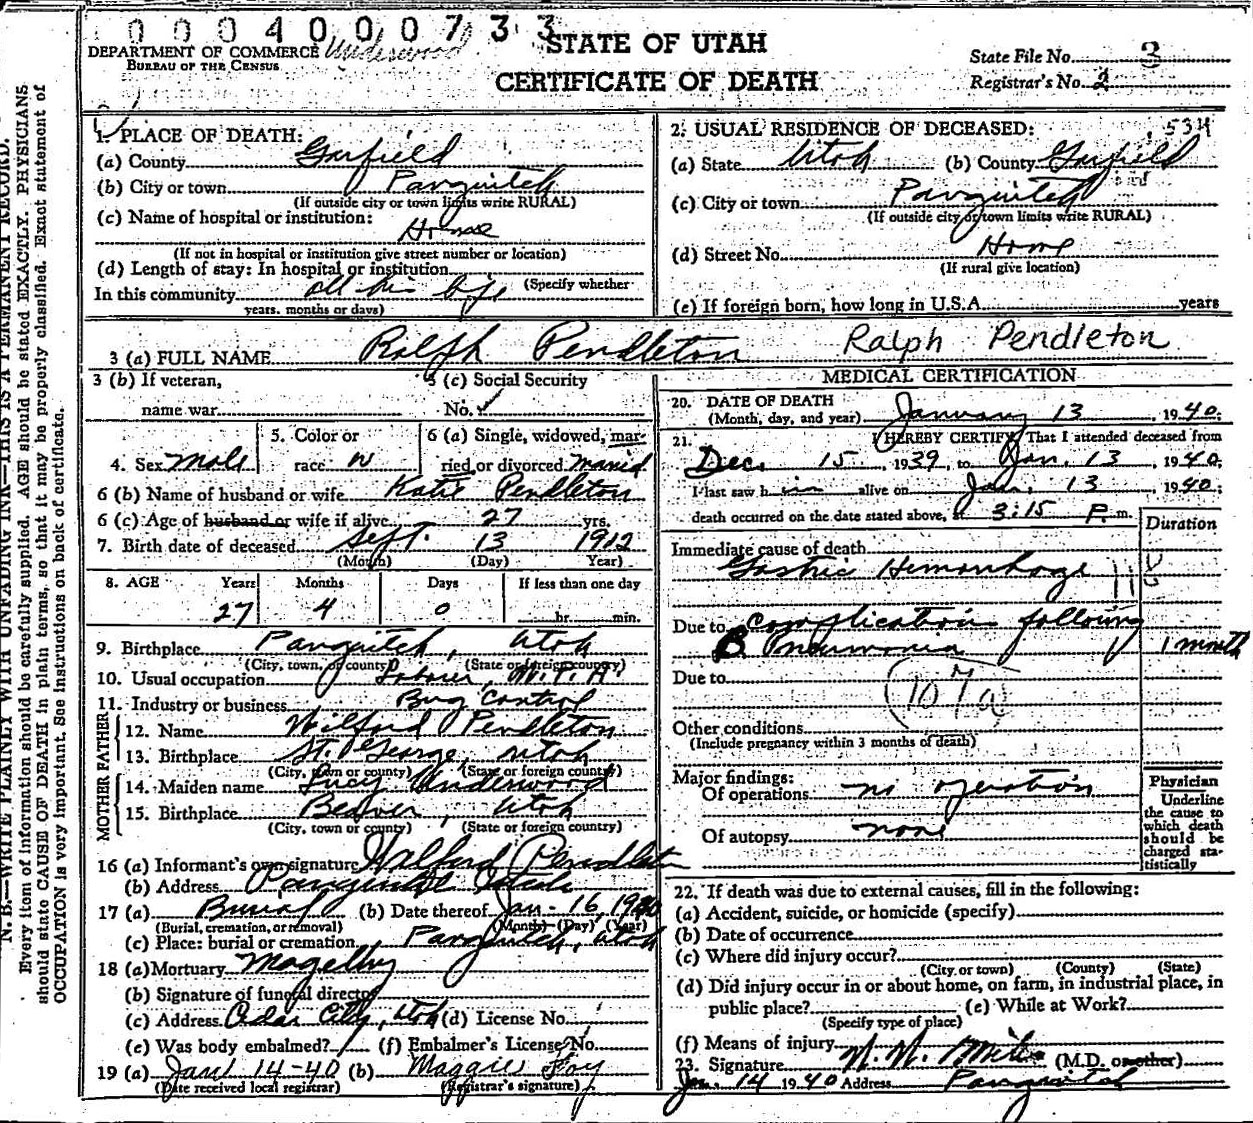 0 0 0 4 0 0 0 7 3 3
Underwood
DEPARTMENT OF COMMERCE
BUREAU OF THE CENSUS
STATE OF UTAH
CERTIFICATE OF DEATH
State File No. 3
Registrar's No. 2
N. B.—WRITE PLAINLY WITH UNFADING INK—THIS IS A PERMANENT RECORD.
Every item of information should be carefully supplied. AGE should be stated EXACTLY. PHYSICIANS
should state CAUSE OF DEATH in plain terms, so that it may be properly classified. Exact statement of
OCCUPATION is very important. See instructions on back of certificate.
1. PLACE OF DEATH:
(a) County Garfield
(b) City or town Panguitch
(If outside city or town limits write RURAL)
(c) Name of hospital or institution:
Home
(If not in hospital or institution give street number or location)
(d) Length of stay: In hospital or institution
(Specify whether
In this community all his life
years, months or days)
2. USUAL RESIDENCE OF DECEASED: 534
(a) State Utah (b) County Garfield
(c) City or town Panguitch
(If outside city or town limits write RURAL)
(d) Street No. Home
(If rural give location)
(e) If foreign born, how long in U.S.A. years
3 (a) FULL NAME Ralph Pendleton Ralph Pendleton
3 (b) If veteran,
name war
3 (c) Social Security
No.
4. Sex Male
5. Color or
race W
6 (a) Single, widowed, mar-
ried or divorced Married
6 (b) Name of husband or wife Katie Pendleton
6 (c) Age of husband or wife if alive 27 yrs.
7. Birth date of deceased Sept. 13 1912
(Month) (Day) Year)
8. AGE Years Months Days If less than one day
27 4 0 hr. min.
9. Birthplace Panguitch, Utah
(City, town, or county) (State or foreign country)
10. Usual occupation Laborer, W.P.A.
11. Industry or business Bug Control
FATHER
12. Name Wilford Pendleton
13. Birthplace St. George, Utah
(City, town or county) (State or foreign country)
MOTHER
14. Maiden name Lucy Underwood
15. Birthplace Beaver, Utah
(City, town or county) (State or foreign country)
16 (a) Informant's own signature Wilford Pendleton
(b) Address Panguitch Utah
17 (a) Burial (b) Date thereof Jan - 16, 1940
(Burial, cremation, or removal) (Month) (Day) (Year)
(c) Place: burial or cremation Panguitch, Utah
18 (a) Mortuary
(b) Signature of funeral director
(c) Address Cedar City, Utah (d) License No.
(e) Was body embalmed? (f) Embalmer's License No.
19 (a) Jan 14-40 (b) Maggie Foy
(Date received local registrar) (Registrar's signature)
MEDICAL CERTIFICATION
20. DATE OF DEATH
(Month, day, and year) January 13 1940;
21. I HEREBY CERTIFY, That I attended deceased from
Dec. 15, 1939, to Jan. 13, 1940;
I last saw him alive on Jan. 13 1940;
death occurred on the date stated above, at 3:15 P. m.
Duration
Immediate cause of death
Gastric Hemorrhage
Due to Complication following
B. Pneumonia 1 month
Due to
107a
Other conditions
(Include pregnancy within 3 months of death)
Major findings:
Of operations no operation
Of autopsy none
Physician
Underline
the cause to
which death
should be
charged sta-
tistically
22. If death was due to external causes, fill in the following:
(a) Accident, suicide, or homicide (specify)
(b) Date of occurrence
(c) Where did injury occur?
(City or town) (County) (State)
(d) Did injury occur in or about home, on farm, in industrial place, in
public place? (e) While at Work?
(Specify type of place)
(f) Means of injury
23. Signature (M.D. or other)
Jan. 14 1940 Address Panguitch